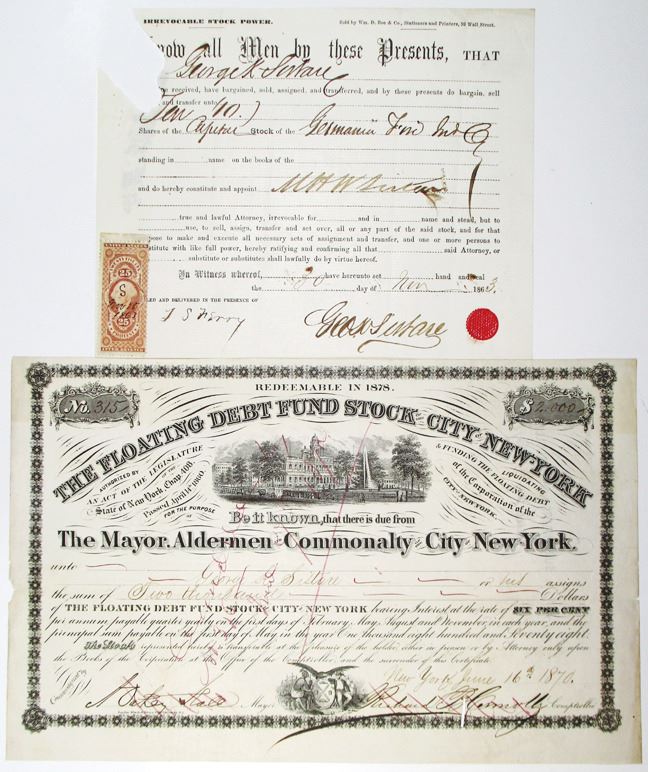 IRREVOCABLE STOCK POWER.
Sold by Wm. D. Roe & Co., Stationers and Printers, 36 Wall Street.
Know all Men by these Presents, THAT
George K. Sistare
received, have bargained, sold, assigned and transferred, and by these presents do bargain, sell
and transfer unto
Ten (10)
Shares of the Capital Stock of the Germania Fire
standing in name on the books of the
and do hereby constitute and appoint
true and lawful Attorney, irrevocable for and in name and stead, but to
use, to sell, assign, transfer and set over, all or any part of the said stock, and for that
purpose to make and execute all necessary acts of assignment and transfer, and one or more persons to
substitute with like full power, hereby ratifying and confirming all that said Attorney, or
substitute or substitutes shall lawfully do by virtue hereof.
In Witness whereof, have hereunto set hand and seal
the 30 day of Nov 1863.
AND DELIVERED IN THE PRESENCE OF
Geo K Sistare
25
25
REDEEMABLE IN 1878.
No. 315
$2.000
THE FLOATING DEBT FUND STOCK OF THE CITY OF NEW-YORK
AUTHORIZED BY
AN ACT OF THE LEGISLATURE
OF THE
State of New York, Chap 408.
Passed April 14th 1860.
FOR THE PURPOSE
OF LIQUIDATING
& FUNDING THE FLOATING DEBT
of the Corporation of the
CITY OF NEW-YORK.
Be it known, that there is due from
The Mayor, Aldermen and Commonalty of the City of New York.
unto Geo. K. Sistare or his assigns
the sum of Two thousand Dollars
OF THE FLOATING DEBT FUND STOCK OF THE CITY OF NEW-YORK bearing Interest at the rate of SIX PER CENT
per annum payable quarter yearly on the first days of February, May, August and November, in each year, and the
principal sum payable on the first day of May in the year One thousand eight hundred and Seventy eight.
The Stock represented hereby is transferable at the pleasure of the holder, either in person or by Attorney only upon
the Books of the Corporation at the Office of the Comptroller, and the surrender of this Certificate.
New York, June 16th 1870.
A. Oakey Hall Mayor
Richard B. Connolly Comptroller